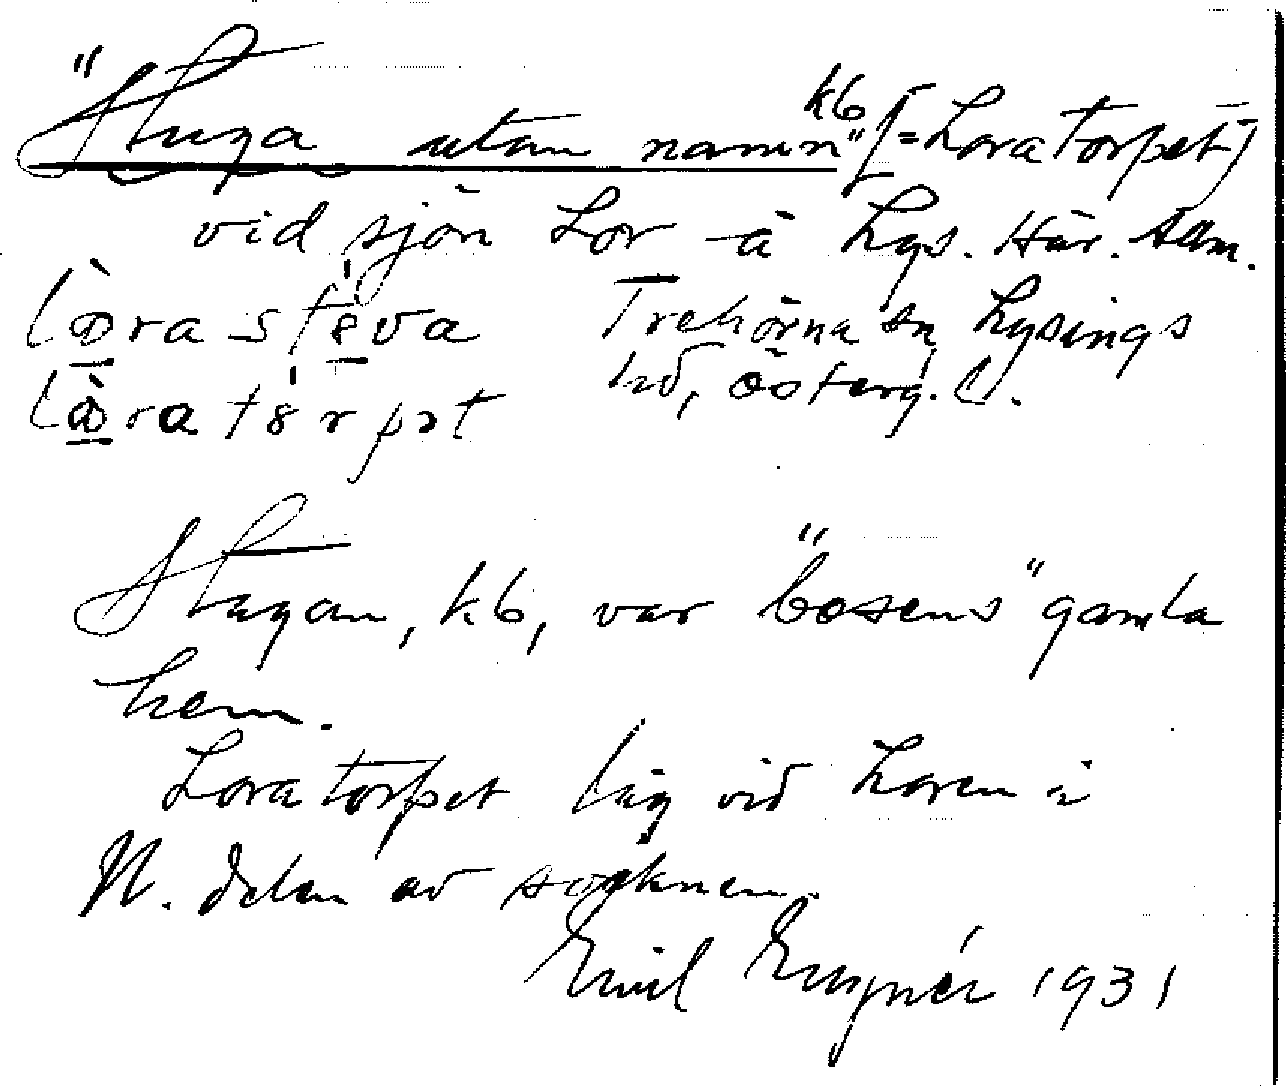 "Stuga utan namn" kb [= Loratorpet]
vid sjön Lor å Lys. Här. sam.
lòrastɵva Trehörna sn Lysings
lòratɵrpət hd, Österg. l.
Stugan, kb, var "bosens" gamla
hem.
Loratorpet låg vid Loren i
N. delen av socknen.
Emil 1931